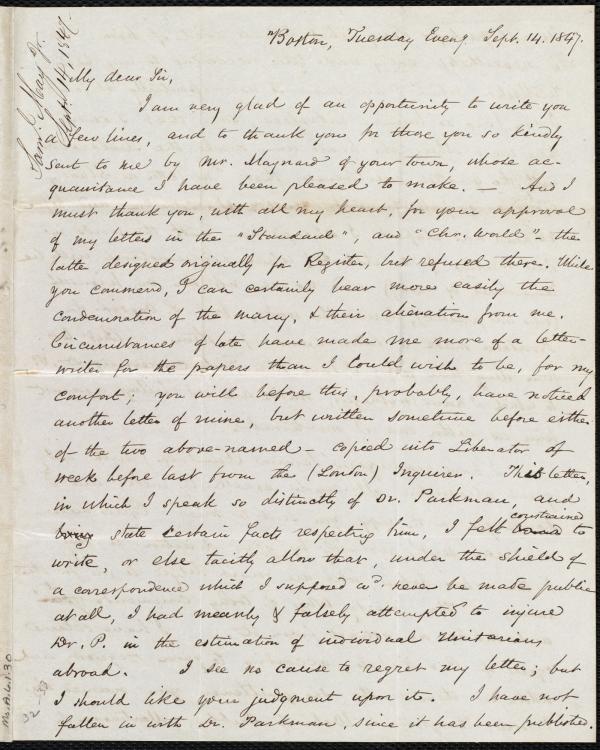 Boston, Tuesday Eveng Sept. 14. 1847.
Saml. May Jr.
Sept. 14, 1847.
My dear Sir,
I am very glad of an opportunity to write you
a few lines, and to thank you for those you so kindly
sent to me by Mr. Maynard of your town, whose ac-
quaintance I have been pleased to make. — And I
must thank you, with all my heart, for your approval
of my letters in the "Standard", and "Chn. World" - the
latter designed originally for Register, but refused there. While
you commend, I can certainly bear more easily the
condemnation of the many, & their alienation from me.
Circumstances of late have made me more of a letter-
writer for the papers than I could wish to be, for my
comfort; you will before this, probably, have noticed
another letter of mine, but written sometime before either
of the two above-named - copied into Liberator of
week before last from the (London) Inquirer. This letter,
in which I speak so distinctly of Dr. Parkman, and
state certain facts respecting him, I felt constrained to
write, or else tacitly allow that, under the shield of
a correspondence which I supposed wd. never be made public
at all, I had meanly & falsely attempted to injure
Dr. P. in the estimation of individual Unitarians
abroad. I see no cause to regret my letter; but
I should like your judgment upon it. I have not
fallen in with Dr. Parkman, since it has been published.